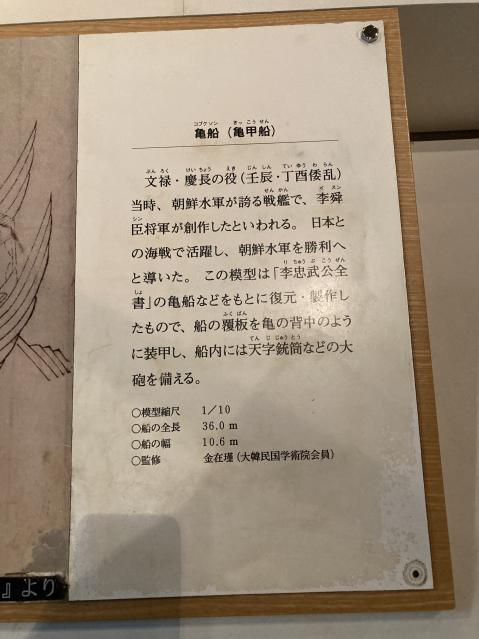 コブクソン きっこうせん
亀船（亀甲船）
ぶんろく けいちょう えき じんしん ていゆうわらん
文禄・慶長の役（壬辰・丁酉倭乱）
せんかん イスン
当時、朝鮮水軍が誇る戦艦で、李舜
シン
臣将軍が創作したといわれる。日本と
の海戦で活躍し、朝鮮水軍を勝利へ
りちゅうぶこうぜん
と導いた。この模型は「李忠武公全
しょ
書」の亀船などをもとに復元・製作し
ふくばん
たもので、船の覆板を亀の背中のよう
てんじじゅうとう
に装甲し、船内には天字銃筒などの大
砲を備える。
○模型縮尺 1/10
○船の全長 36.0 m
○船の幅 10.6 m
○監修 金在瑾（大韓民国学術院会員）
』より